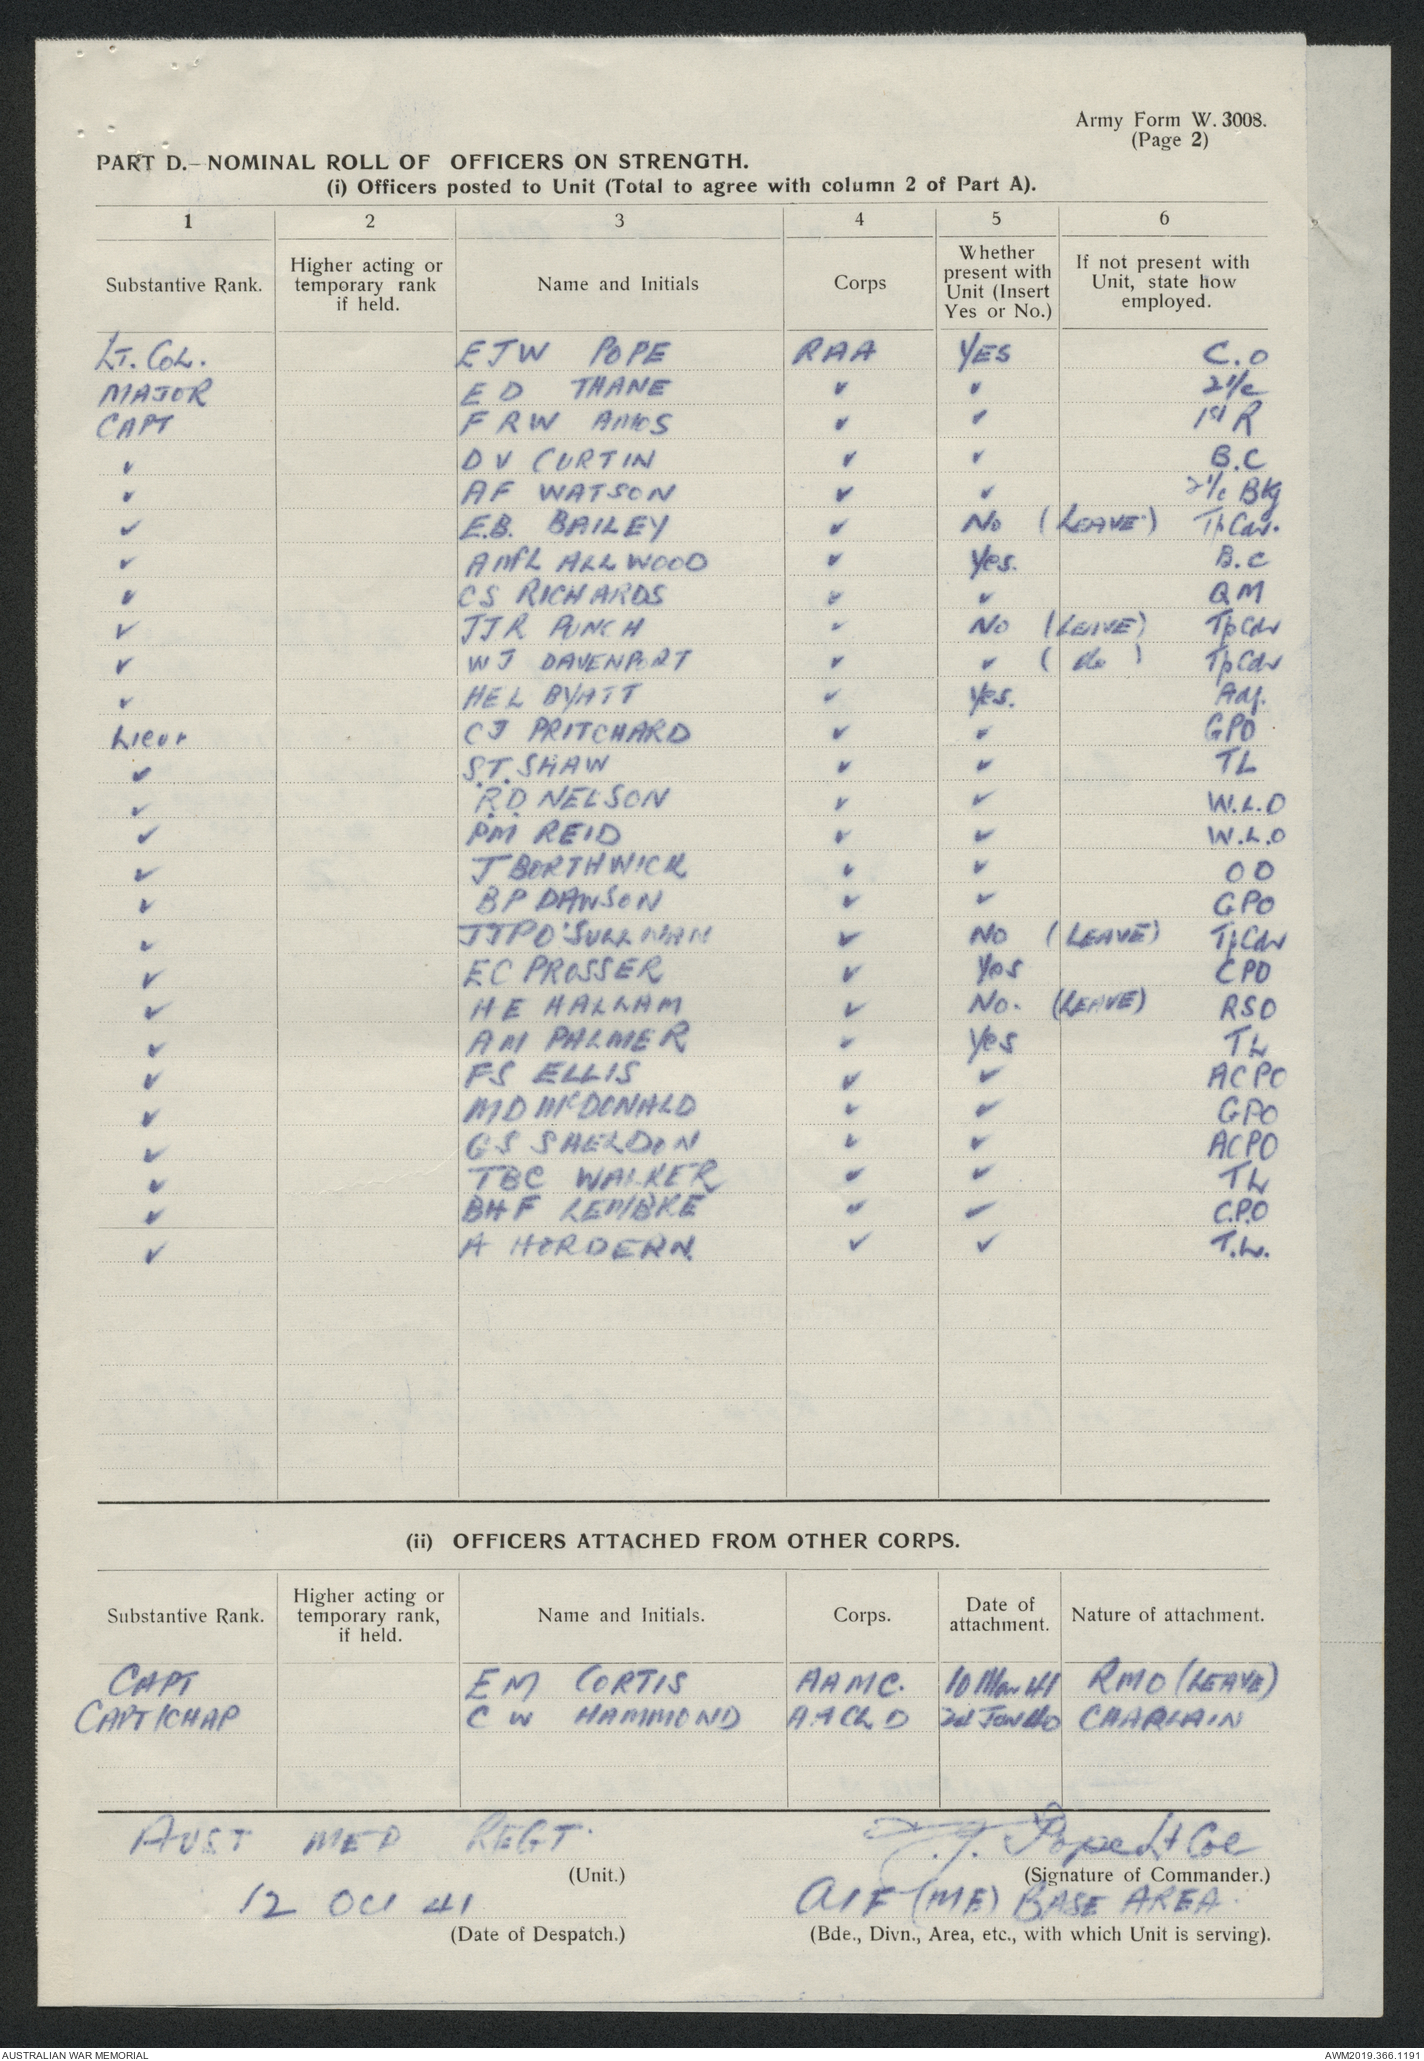 Army Form W. 3008.
(Page 2)
PART D.—NOMINAL ROLL OF OFFICERS ON STRENGTH.
(i) Officers posted to Unit (Total to agree with column 2 of Part A).
1 2 3 4 5 6
Substantive Rank. Higher acting or temporary rank if held. Name and Initials Corps Whether present with Unit (Insert Yes or No.) If not present with Unit, state how employed.
LT. COL. EJW POPE RAA YES C.O
MAJOR E D THANE ✓ ✓ 2I/c
CAPT F R W AMOS ✓ ✓ 1st R
✓ D V CURTIN ✓ ✓ B.C
✓ AF WATSON ✓ ✓ 2I/c Bty
✓ E.B. BAILEY ✓ No (LEAVE) Tp Cdr.
✓ AMcL ALLWOOD ✓ Yes. B.C
✓ CS RICHARDS ✓ ✓ QM
✓ JJR PUNCH ✓ No (LEAVE) Tp Cdr
✓ WJ DAVENPORT ✓ ✓ ( do ) Tp Cdr
✓ HEL BYATT ✓ Yes. Adj.
Lieut CJ PRITCHARD ✓ ✓ GPO
✓ S.T. SHAW ✓ ✓ TL
✓ R.D. NELSON ✓ ✓ W.L.O
✓ PM REID ✓ ✓ W.L.O
✓ J BORTHWICK ✓ ✓ OO
✓ BP DAWSON ✓ ✓ GPO
✓ JJP O'SULLIVAN ✓ NO (LEAVE) Tp Cdr
✓ EC PROSSER ✓ Yes CPO
✓ HE HALLAM ✓ No. (LEAVE) RSO
✓ AM PALMER ✓ Yes TL
✓ FS ELLIS ✓ ✓ ACPO
✓ MD McDONALD ✓ ✓ GPO
✓ GS SHELDON ✓ ✓ ACPO
✓ TBC WALKER ✓ ✓ TL
✓ BHF LEMBKE ✓ ✓ C.P.O
✓ A HORDERN. ✓ ✓ T.L.
(ii) OFFICERS ATTACHED FROM OTHER CORPS.
Substantive Rank. Higher acting or temporary rank, if held. Name and Initials. Corps. Date of attachment. Nature of attachment.
CAPT EM CORTIS AAMC. 10 Mar 41 RMO (LEAVE)
CAPT/CHAP C W HAMMOND 40 CHAPLAIN
AUST MED REGT.
Pope Lt Col
(Unit.) (Signature of Commander.)
12 OCT 41 AIF (ME) BASE AREA.
(Date of Despatch.) (Bde., Divn., Area, etc., with which Unit is serving).
AUSTRALIAN WAR MEMORIAL AWM2019.366.1191